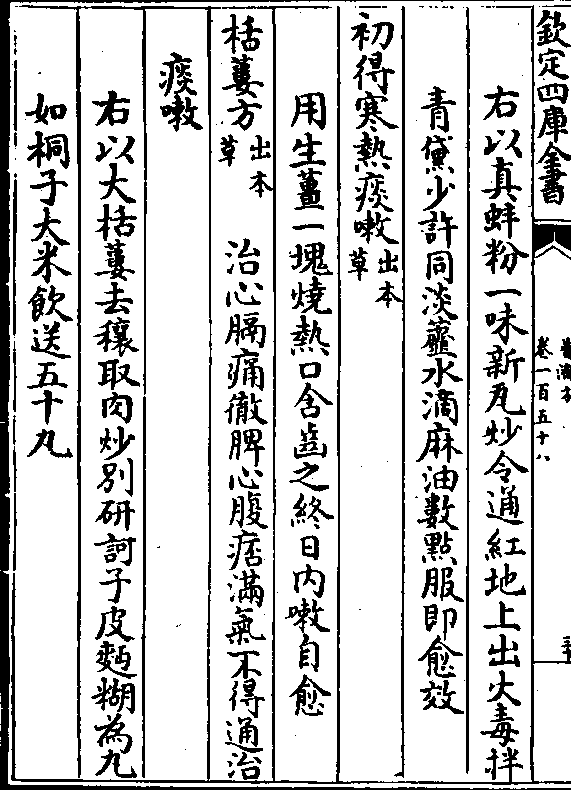 欽定四庫全書
普濟方
卷一百五十八
右以真蚌粉一味新瓦炒令通紅地上出火毒拌
青黛少許同淡虀水滴麻油數點服即愈效
初得寒熱痰嗽出本草
用生薑一塊燒熱口含齒之終日内嗽自愈
栝蔞方出本草　治心膈痛徹脾心腹痞滿氣不得通治
痰嗽
右以大栝蔞去穰取肉炒別研訶子皮麪糊為丸
如桐子大米飲送五十丸